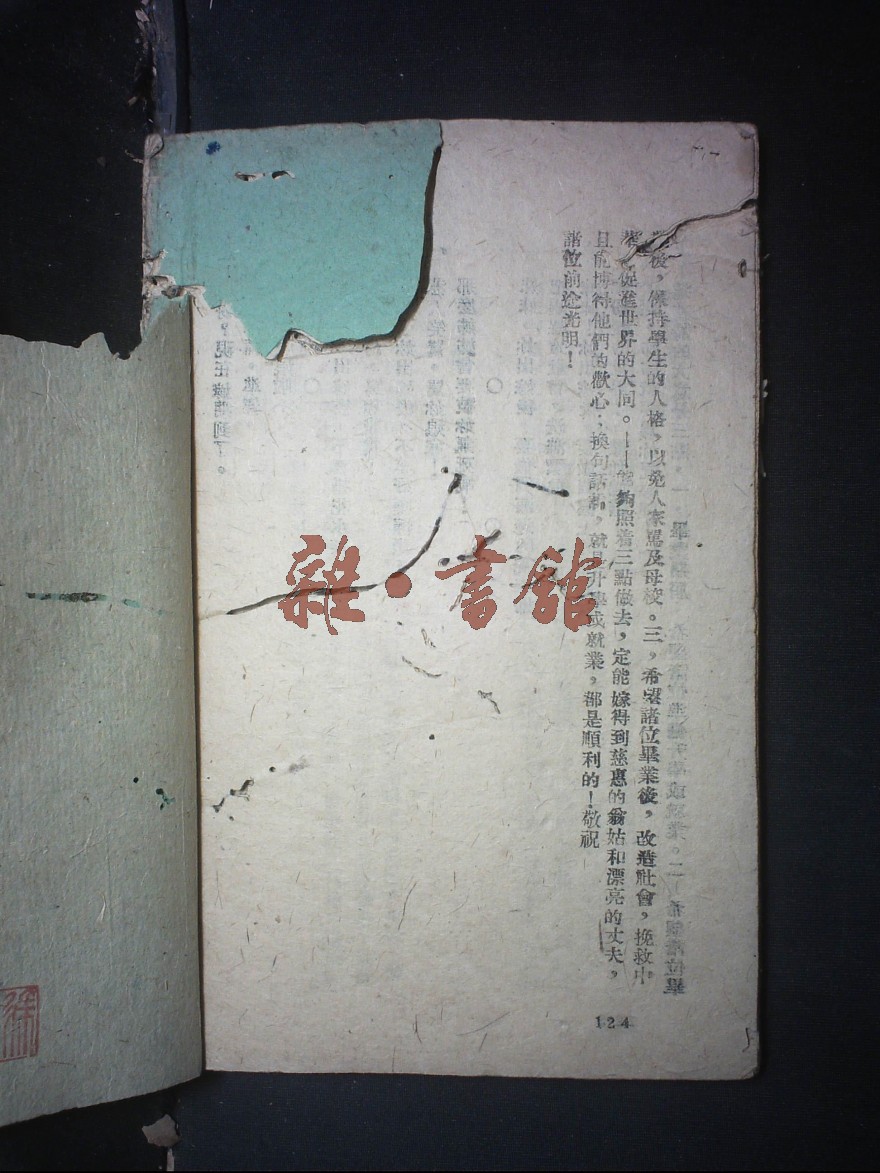 業後，保持學生的人格，以免人家罵及母校。三，希望諸位畢業後，改造社會，挽救中
華，促進世界的大同。——能夠照着三點做去，定能嫁得到慈惠的翁姑和漂亮的丈夫，
且能博得他們的歡心；換句話說，就是升學或就業，都是順利的！敬祝
諸位前途光明！
124
雜·書館